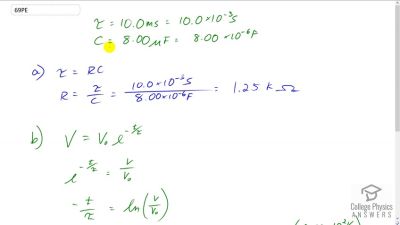 69PE
τ = 10.0 ms = 10.0 × 10⁻³ s
C = 8.00 μF = 8.00 × 10⁻⁶ F
a) τ = RC
R = τ/C = 10.0 × 10⁻³ s / 8.00 × 10⁻⁶ F = 1.25 k Ω
b) V = V₀ e^(-t/τ)
e^(-t/τ) = V/V₀
-t/τ = ln(V/V₀)
College Physics
ANSWERS